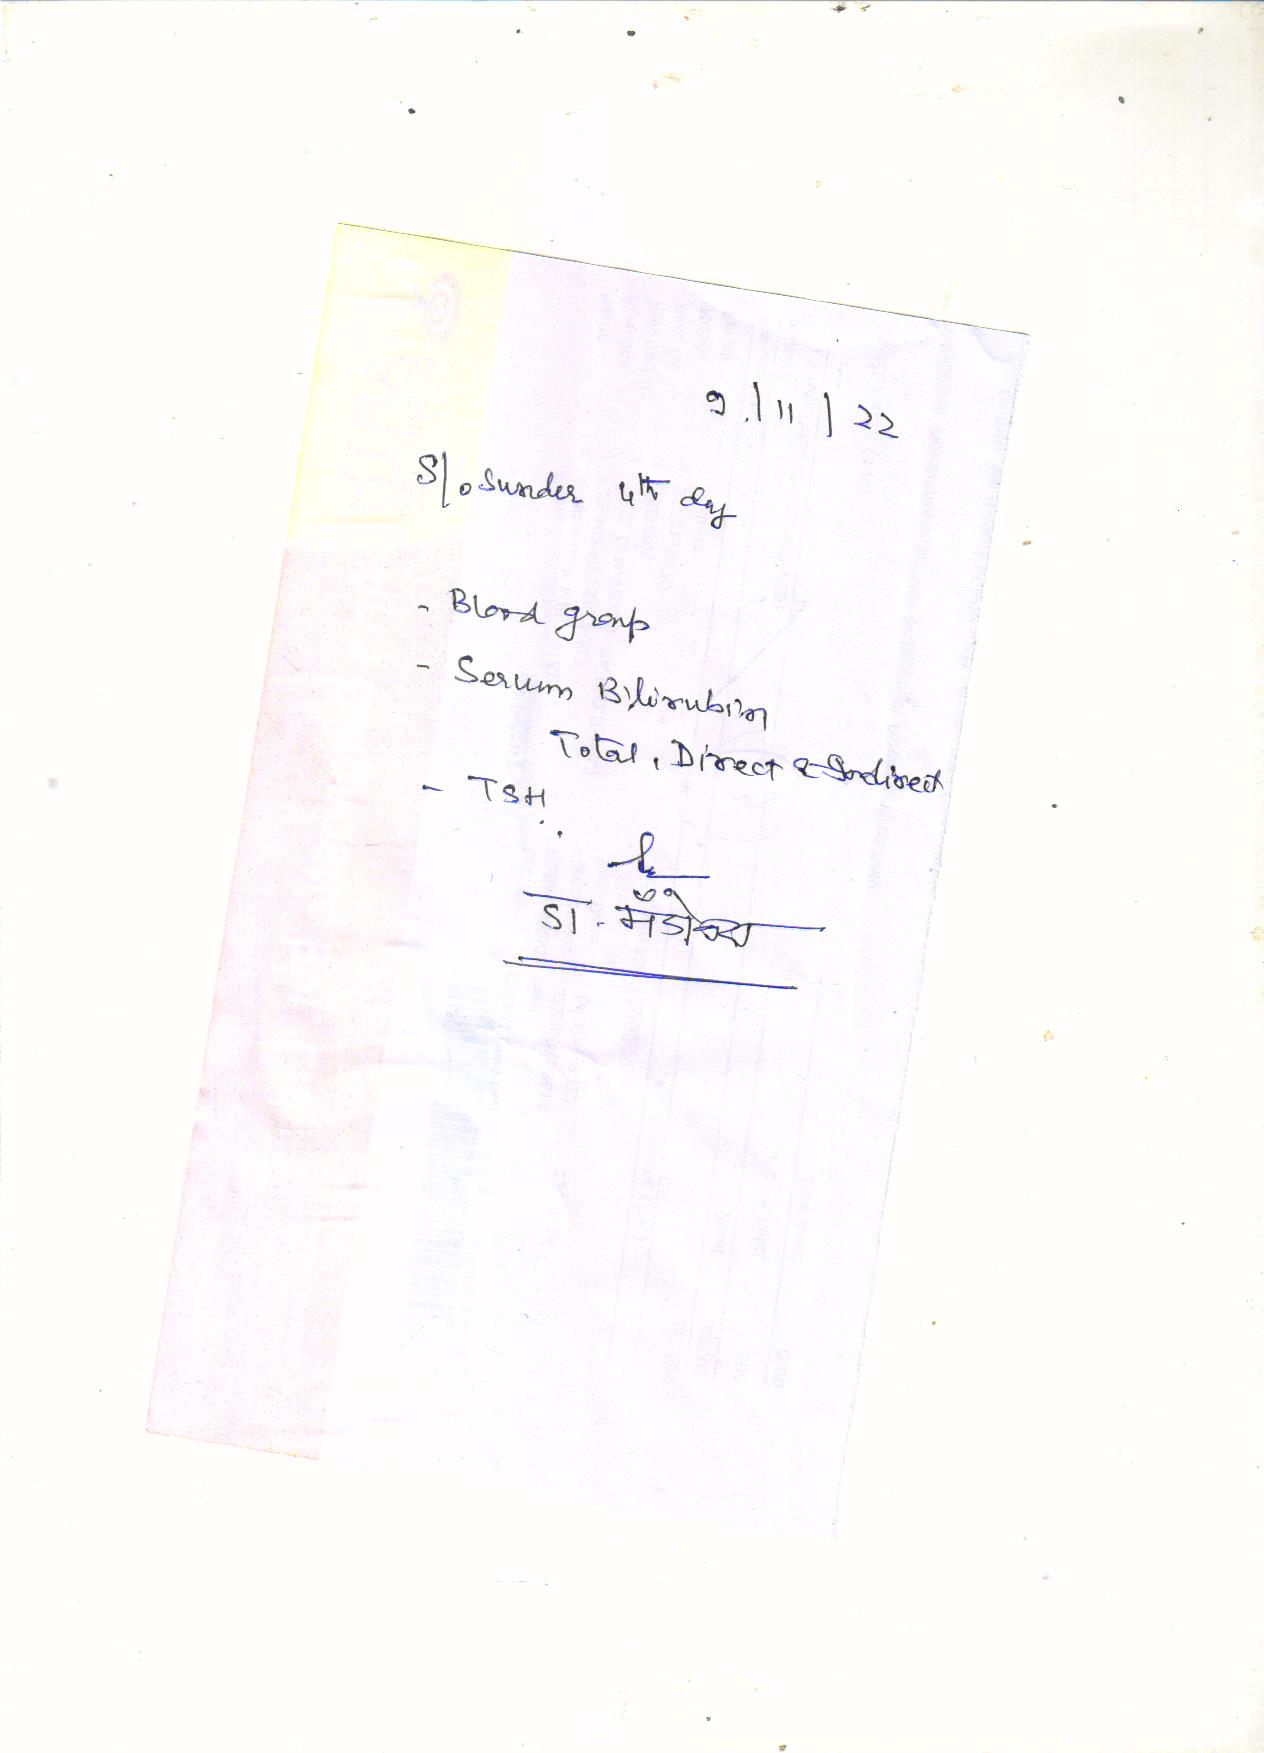 9/11/22
S/o Sunder 4th day
- Blood group
- Serum Bilirubin
Total, Direct & Indirect
- TSH
डा.